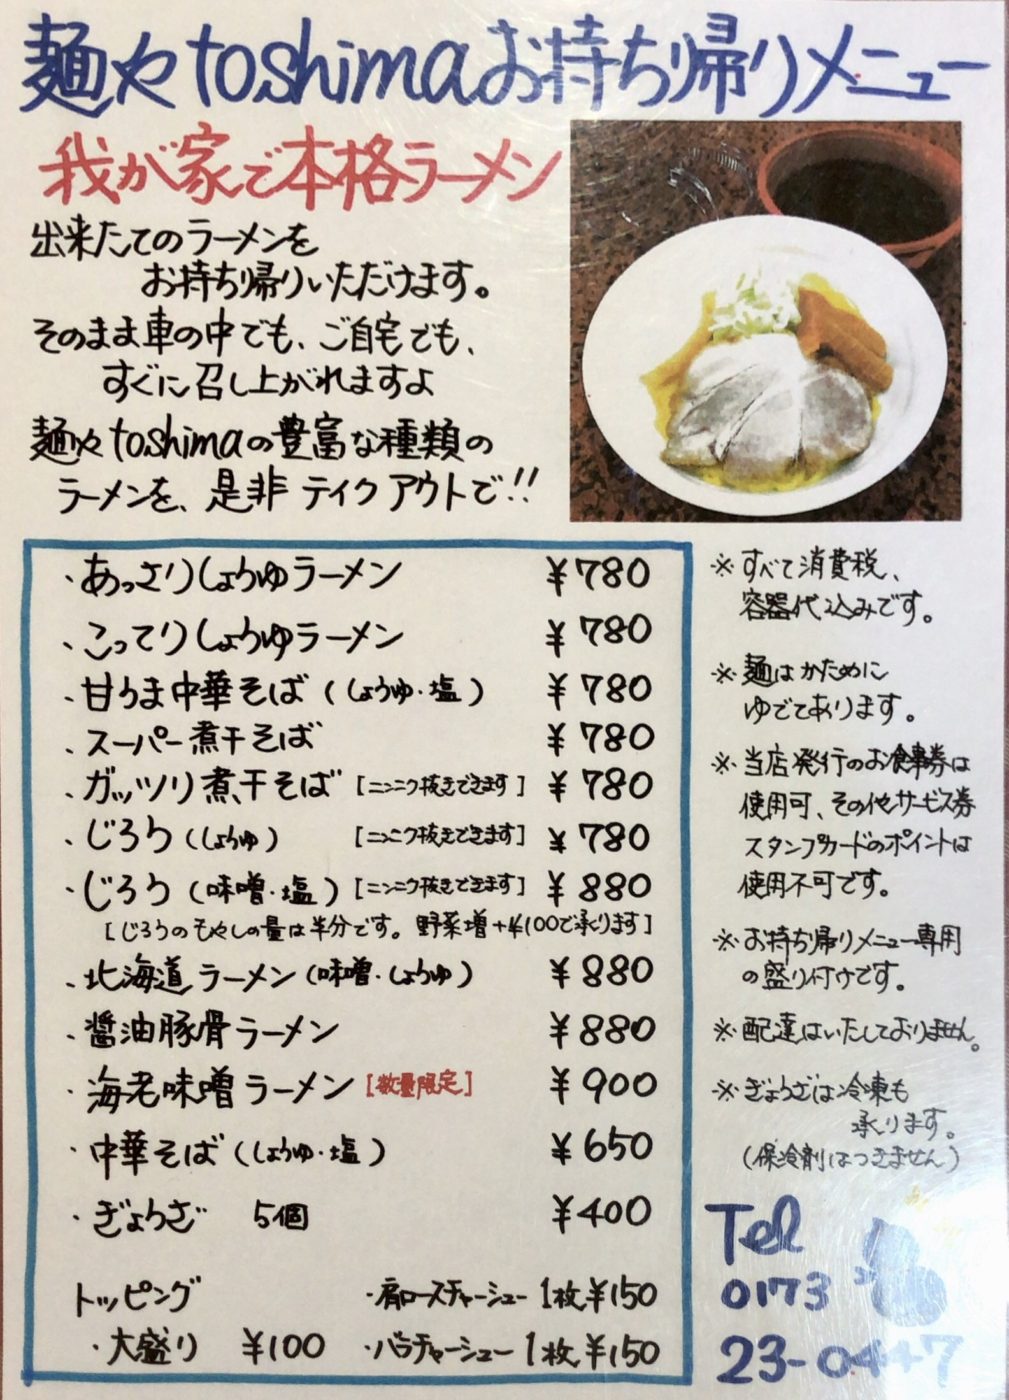 麺や toshima お持ち帰りメニュー
我が家で本格ラーメン
出来たてのラーメンを
お持ち帰りいただけます。
そのまま車の中でも、ご自宅でも、
すぐに召し上がれますよ
麺や toshima の豊富な種類の
ラーメンを、是非 テイクアウトで!!
・あっさりしょうゆラーメン ¥780
・こってりしょうゆラーメン ¥780
・甘うま中華そば (しょうゆ・塩) ¥780
・スーパー煮干そば ¥780
・ガッツリ煮干そば [ニンニク抜きできます] ¥780
・じろう (しょうゆ) [ニンニク抜きできます] ¥780
・じろう (味噌・塩) [ニンニク抜きできます] ¥880
[じろうのもやしの量は半分です。野菜増+¥100で承ります]
・北海道ラーメン (味噌・しょうゆ) ¥880
・醤油豚骨ラーメン ¥880
・海老味噌ラーメン [数量限定] ¥900
・中華そば (しょうゆ・塩) ¥650
・ぎょうざ 5個 ¥400
トッピング ・肩ロースチャーシュー 1枚 ¥150
・大盛り ¥100 ・バラチャーシュー 1枚 ¥150
※すべて消費税、
容器代込みです。
※麺はかために
ゆでてあります。
※当店発行のお食事券は
使用可、その他サービス券
スタンプカードのポイントは
使用不可です。
※お持ち帰りメニュー専用
の盛り付けです。
※配達はいたしておりません。
※ぎょうざは冷凍も
承ります。
(保冷剤はつきません)
Tel
0173
23-0447